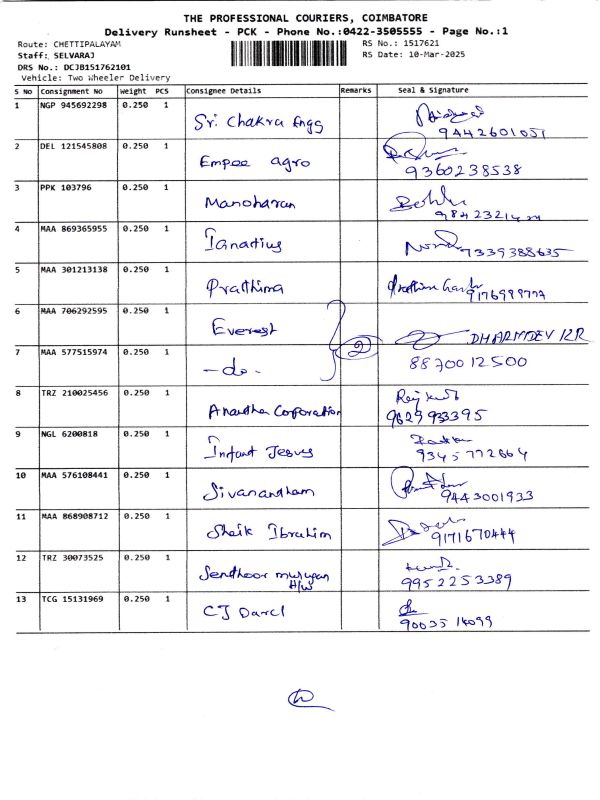 THE PROFESSIONAL COURIERS, COIMBATORE
Delivery Runsheet - PCK - Phone No.:0422-3505555 - Page No.:1
Route: CHETTIPALAYAM RS No.: 1517621
Staff: SELVARAJ RS Date: 10-Mar-2025
DRS No.: DCJB151762101
Vehicle: Two Wheeler Delivery
S No Consignment No Weight PCS Consignee Details Remarks Seal & Signature
1 NGP 945692298 0.250 1 Sri Chakra Engg
9442601051
2 DEL 121545808 0.250 1 Empee agro
9360238538
3 PPK 103796 0.250 1 Manoharan
4 MAA 869365955 0.250 1 Ignatius
7339388635
5 MAA 301213138 0.250 1 Prathima
6 MAA 706292595 0.250 1 Everest
DHARMDEV KR
7 MAA 577515974 0.250 1 -do- 2 8870012500
8 TRZ 210025456 0.250 1 Anantha Corporation
9629933395
9 NGL 6200818 0.250 1 Infant Jesus
9345772664
10 MAA 576108441 0.250 1 Sivanandham
9443001933
11 MAA 868908712 0.250 1 Sheik Ibrahim
9171670444
12 TRZ 30073525 0.250 1 Senthoor murugan
H/W
9952253389
13 TCG 15131969 0.250 1 CJ Darcl
9003514099